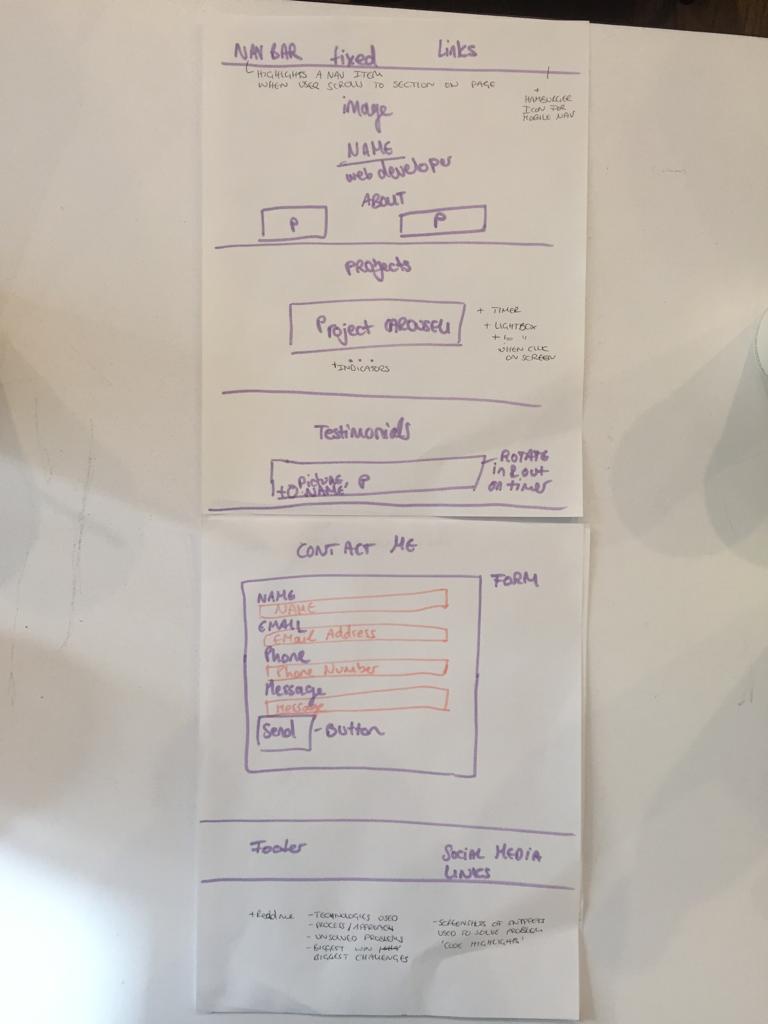 NAV BAR fixed Links
HIGHLIGHTS A NAV ITEM
WHEN USER SCROLL TO SECTION ON PAGE
+
HAMBURGER
ICON FOR
MOBILE NAV
image
NAME
web developer
ABOUT
P P
PROjects
Project CAROUSEL
+ TIMER
+ LIGHTBOX
+
WHEN CLICK
ON SCREEN
+INDICATORS
Testimonials
Picture, P
NAME
ROTATE
in & out
on timer
CONTACT ME
FORM
NAME
NAME
EMAIL
EMail Address
Phone
Phone Number
Message
Message
Send - Button
Footer
SOCIAL MEDIA
LINKS
+ Readme
- TECHNOLOGIES USED
- PROCESS/APPROACH
- UNSOLVED PROBLEMS
- BIGGEST WIN
BIGGEST CHALLENGES
- SCREENSHOTS OF SNIPPETS
USED TO SOLVE PROBLEM
'CODE HIGHLIGHTS'